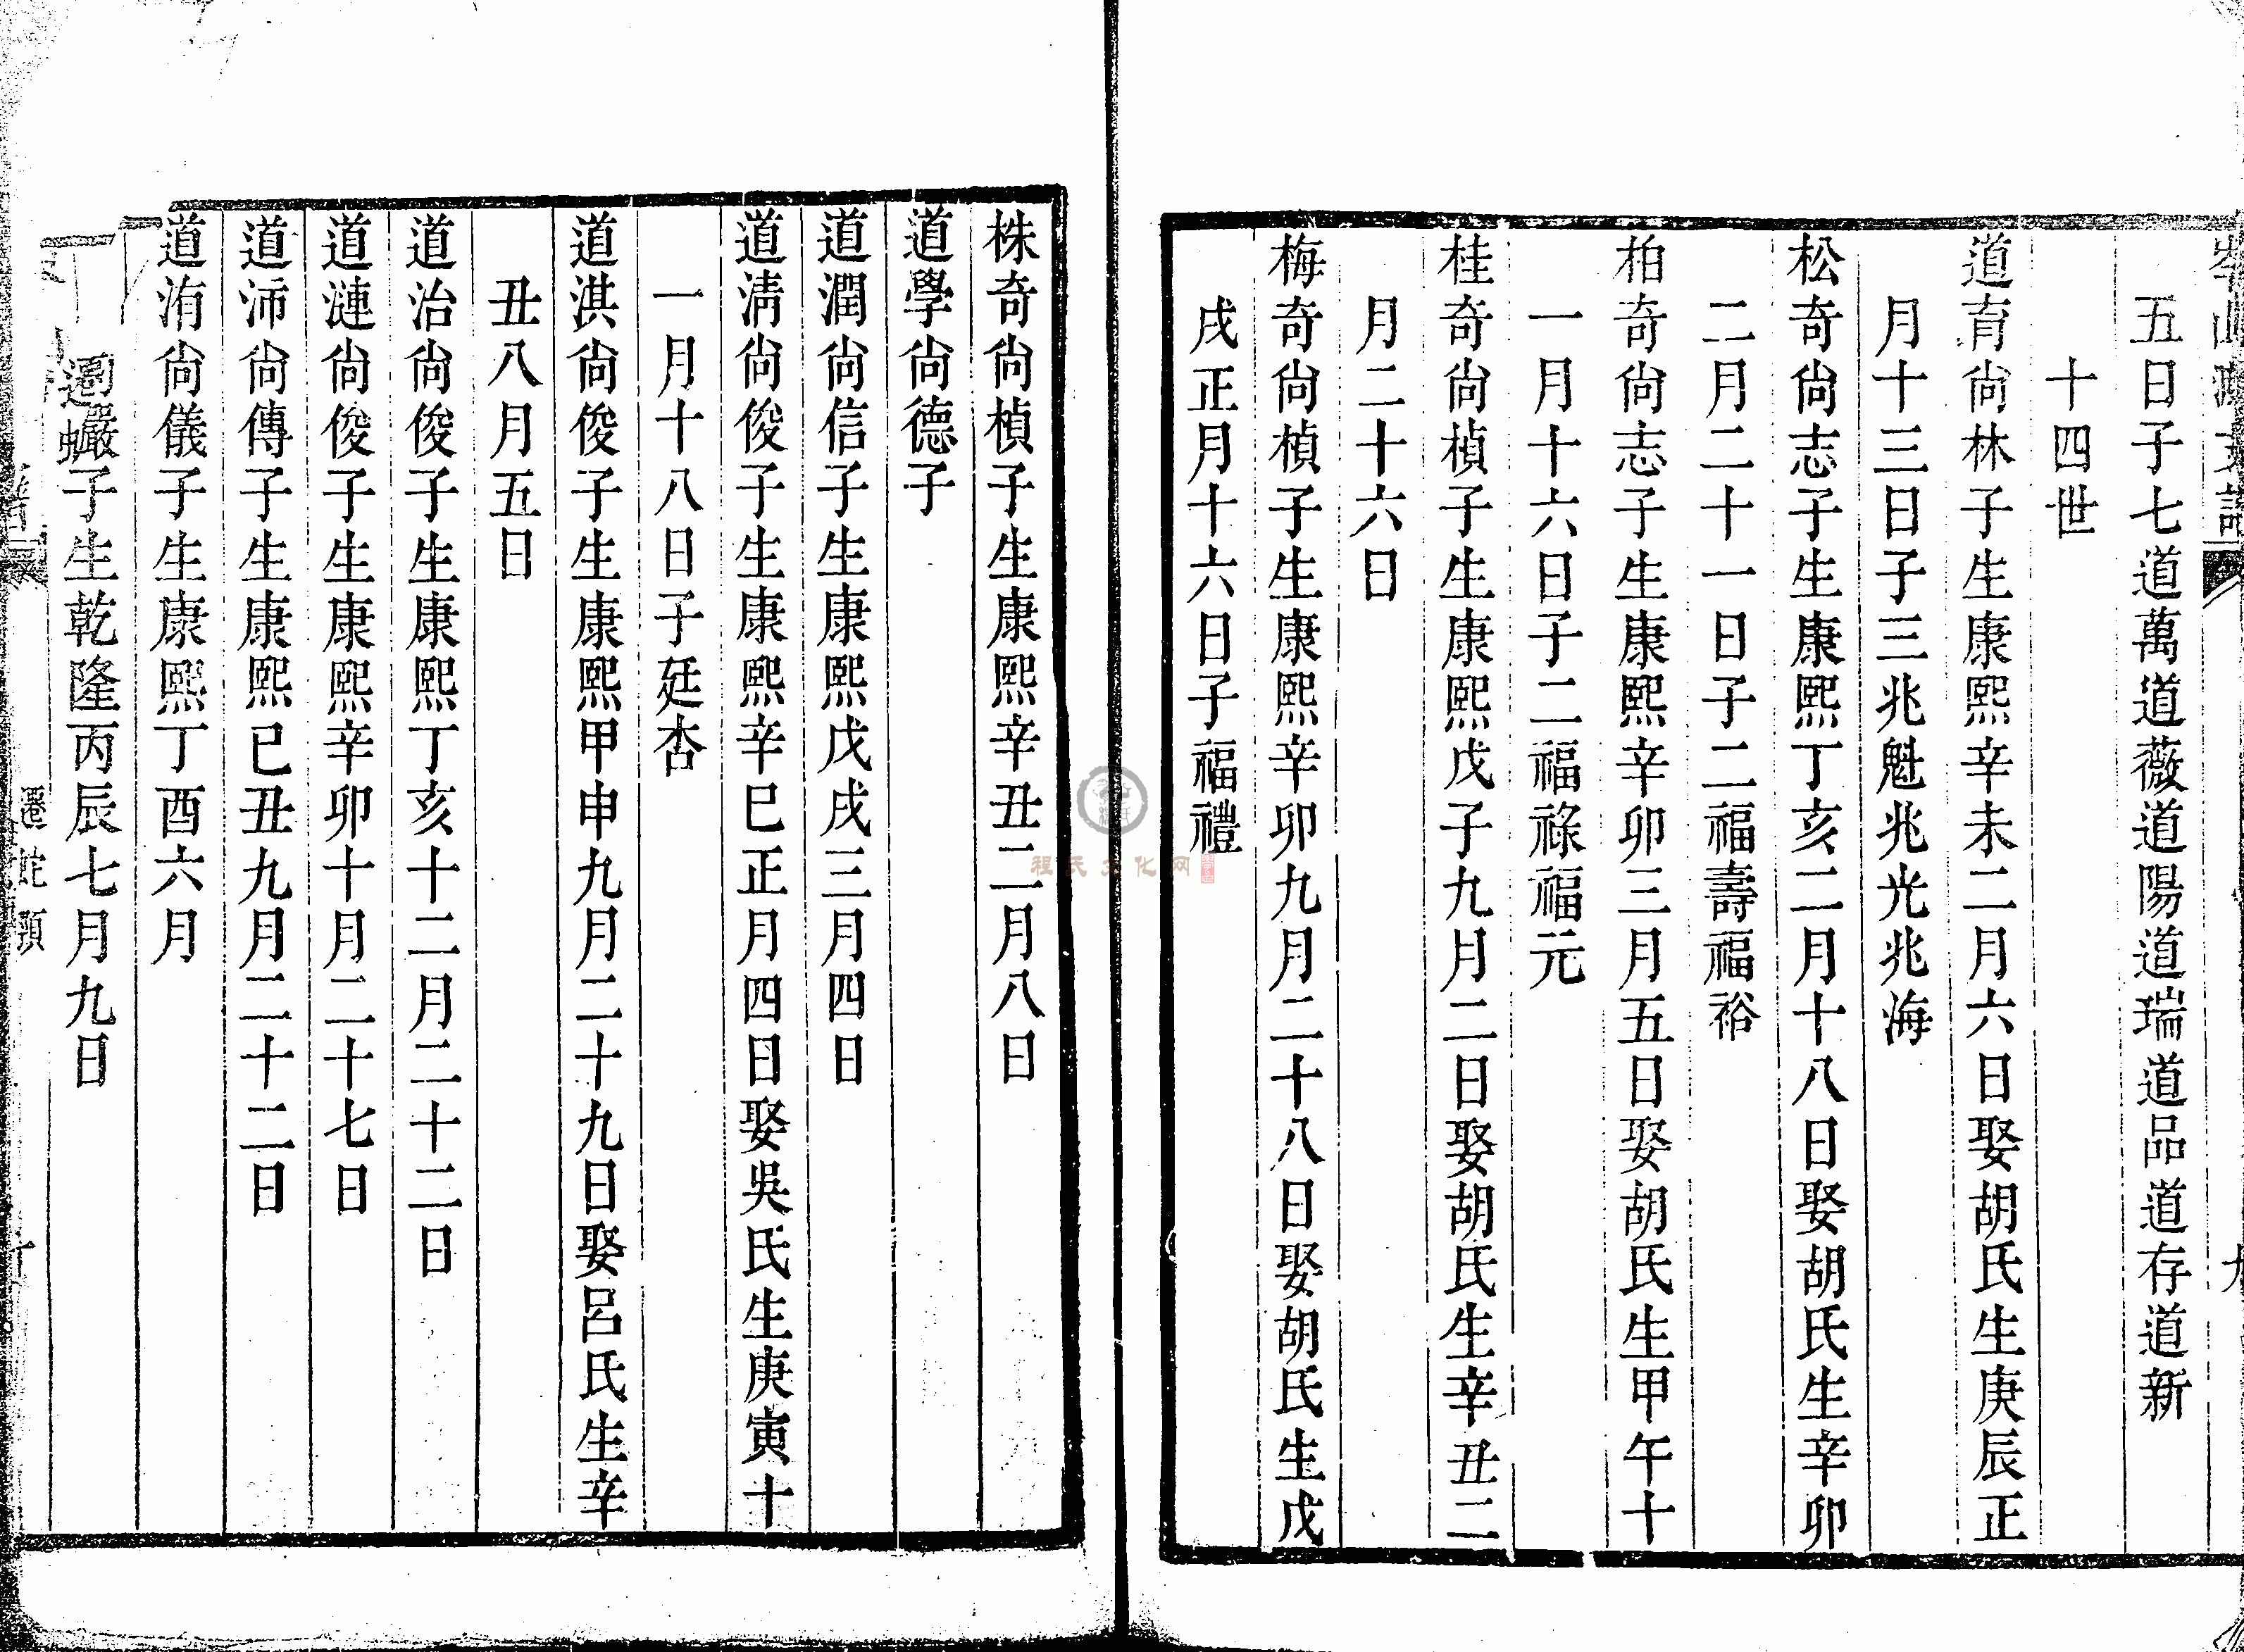 五日子七道萬道薇道陽道瑞道品道存道新
十四世
道育尙林子生康熙辛未二月六日娶胡氏生庚辰正
月十三日子三兆魁兆光兆海
松奇尙志子生康熙丁亥二月十八日娶胡氏生辛卯
二月二十一日子二福壽福裕
柏奇尙志子生康熙辛卯三月五日娶胡氏生甲午十
一月十六日子二福祿福元
桂奇尙楨子生康熙戊子九月二日娶胡氏生辛丑二
月二十六日
梅奇尙楨子生康熙辛卯九月二十八日娶胡氏生戊
戌正月十六日子福禮
株奇尙楨子生康熙辛丑二月八日
道學尙德子
道潤尙信子生康熙戊戌三月四日
道淸尙俊子生康熙辛巳正月四日娶吳氏生庚寅十
一月十八日子廷杏
道淇尙俊子生康熙甲申九月二十九日娶呂氏生辛
丑八月五日
道治尙俊子生康熙丁亥十二月二十二日
道漣尙俊子生康熙辛卯十月二十七日
道沛尙傳子生康熙己丑九月二十二日
道洧尙儀子生康熙丁酉六月
子生乾隆丙辰七月九日
程氏文化网